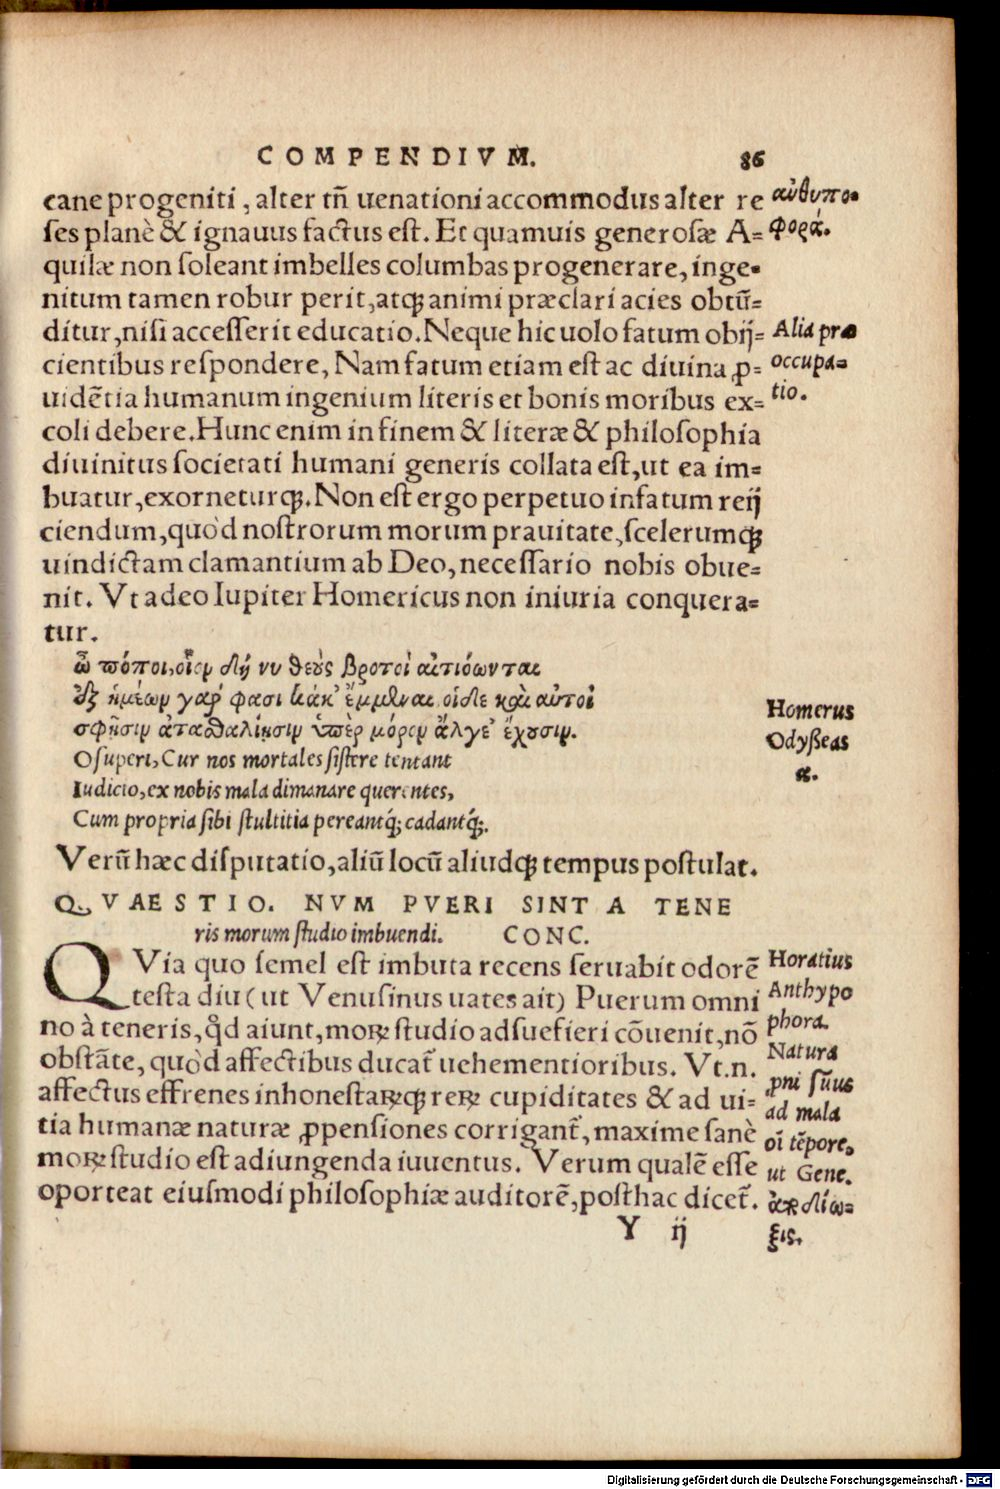 COMPENDIVM. 86
cane progeniti, alter tñ uenationi accommodus alter re
ses planè & ignauus factus est. Et quamuis generosæ A=
quilæ non soleant imbelles columbas progenerare, inge=
nitum tamen robur perit, atqꝫ animi præclari acies obtũ=
ditur, nisi accesserit educatio. Neque hic uolo fatum obij=
cientibus respondere, Nam fatum etiam est ac diuina ꝓ=
uidẽtia humanum ingenium literis et bonis moribus ex=
coli debere. Hunc enim in finem & literæ & philosophia
diuinitus societati humani generis collata est, ut ea im=
buatur, exorneturqꝫ. Non est ergo perpetuo in fatum reij
ciendum, quòd nostrorum morum prauitate, scelerumqꝫ
uindictam clamantium ab Deo, necessario nobis obue=
nit. Vt adeo Iupiter Homericus non iniuria conquera=
tur.
ὢ πόποι, οἷον δή νυ θεοὺς βροτοὶ αἰτιόωνται
ἐξ ἡμέων γάρ φασι κάκ' ἔμμεναι, οἱ δε καὶ αὐτοὶ
σφῇσιν ἀτασθαλίῃσιν ὑπὲρ μόρον ἄλγε' ἔχουσιν.
O superi, Cur nos mortales sistere tentant
Iudicio, ex nobis mala dimanare querentes,
Cum propria sibi stultitia pereantq́ꝫ cadantq́ꝫ.
Verũ hæc disputatio, aliũ locũ aliudqꝫ tempus postulat.
QVAESTIO. NVM PVERI SINT A TENE
ris morum studio imbuendi. CONC.
QVia quo semel est imbuta recens seruabit odorẽ
testa diu (ut Venusinus uates ait) Puerum omni
no à teneris, qd̕ aiunt, moꝝ studio adsuefieri cõuenit, nõ
obstãte, quòd affectibus ducat̃ uehementioribus. Vt.n.
affectus effrenes inhonestaꝝqꝫ reꝝ cupiditates & ad ui=
tia humanæ naturæ ꝓpensiones corrigant̃, maxime sanè
moꝝ studio est adiungenda iuuentus. Verum qualẽ esse
oporteat eiusmodi philosophiæ auditorẽ, posthac dicet̃.
Y ij
αὐθυπο=
φορά.
Alia præ
occupa=
tio.
Homerus
Odyßeas
α.
Horatius
Anthypo
phora.
Natura
pni sũus
ad mala
oĩ tẽpore,
ut Gene.